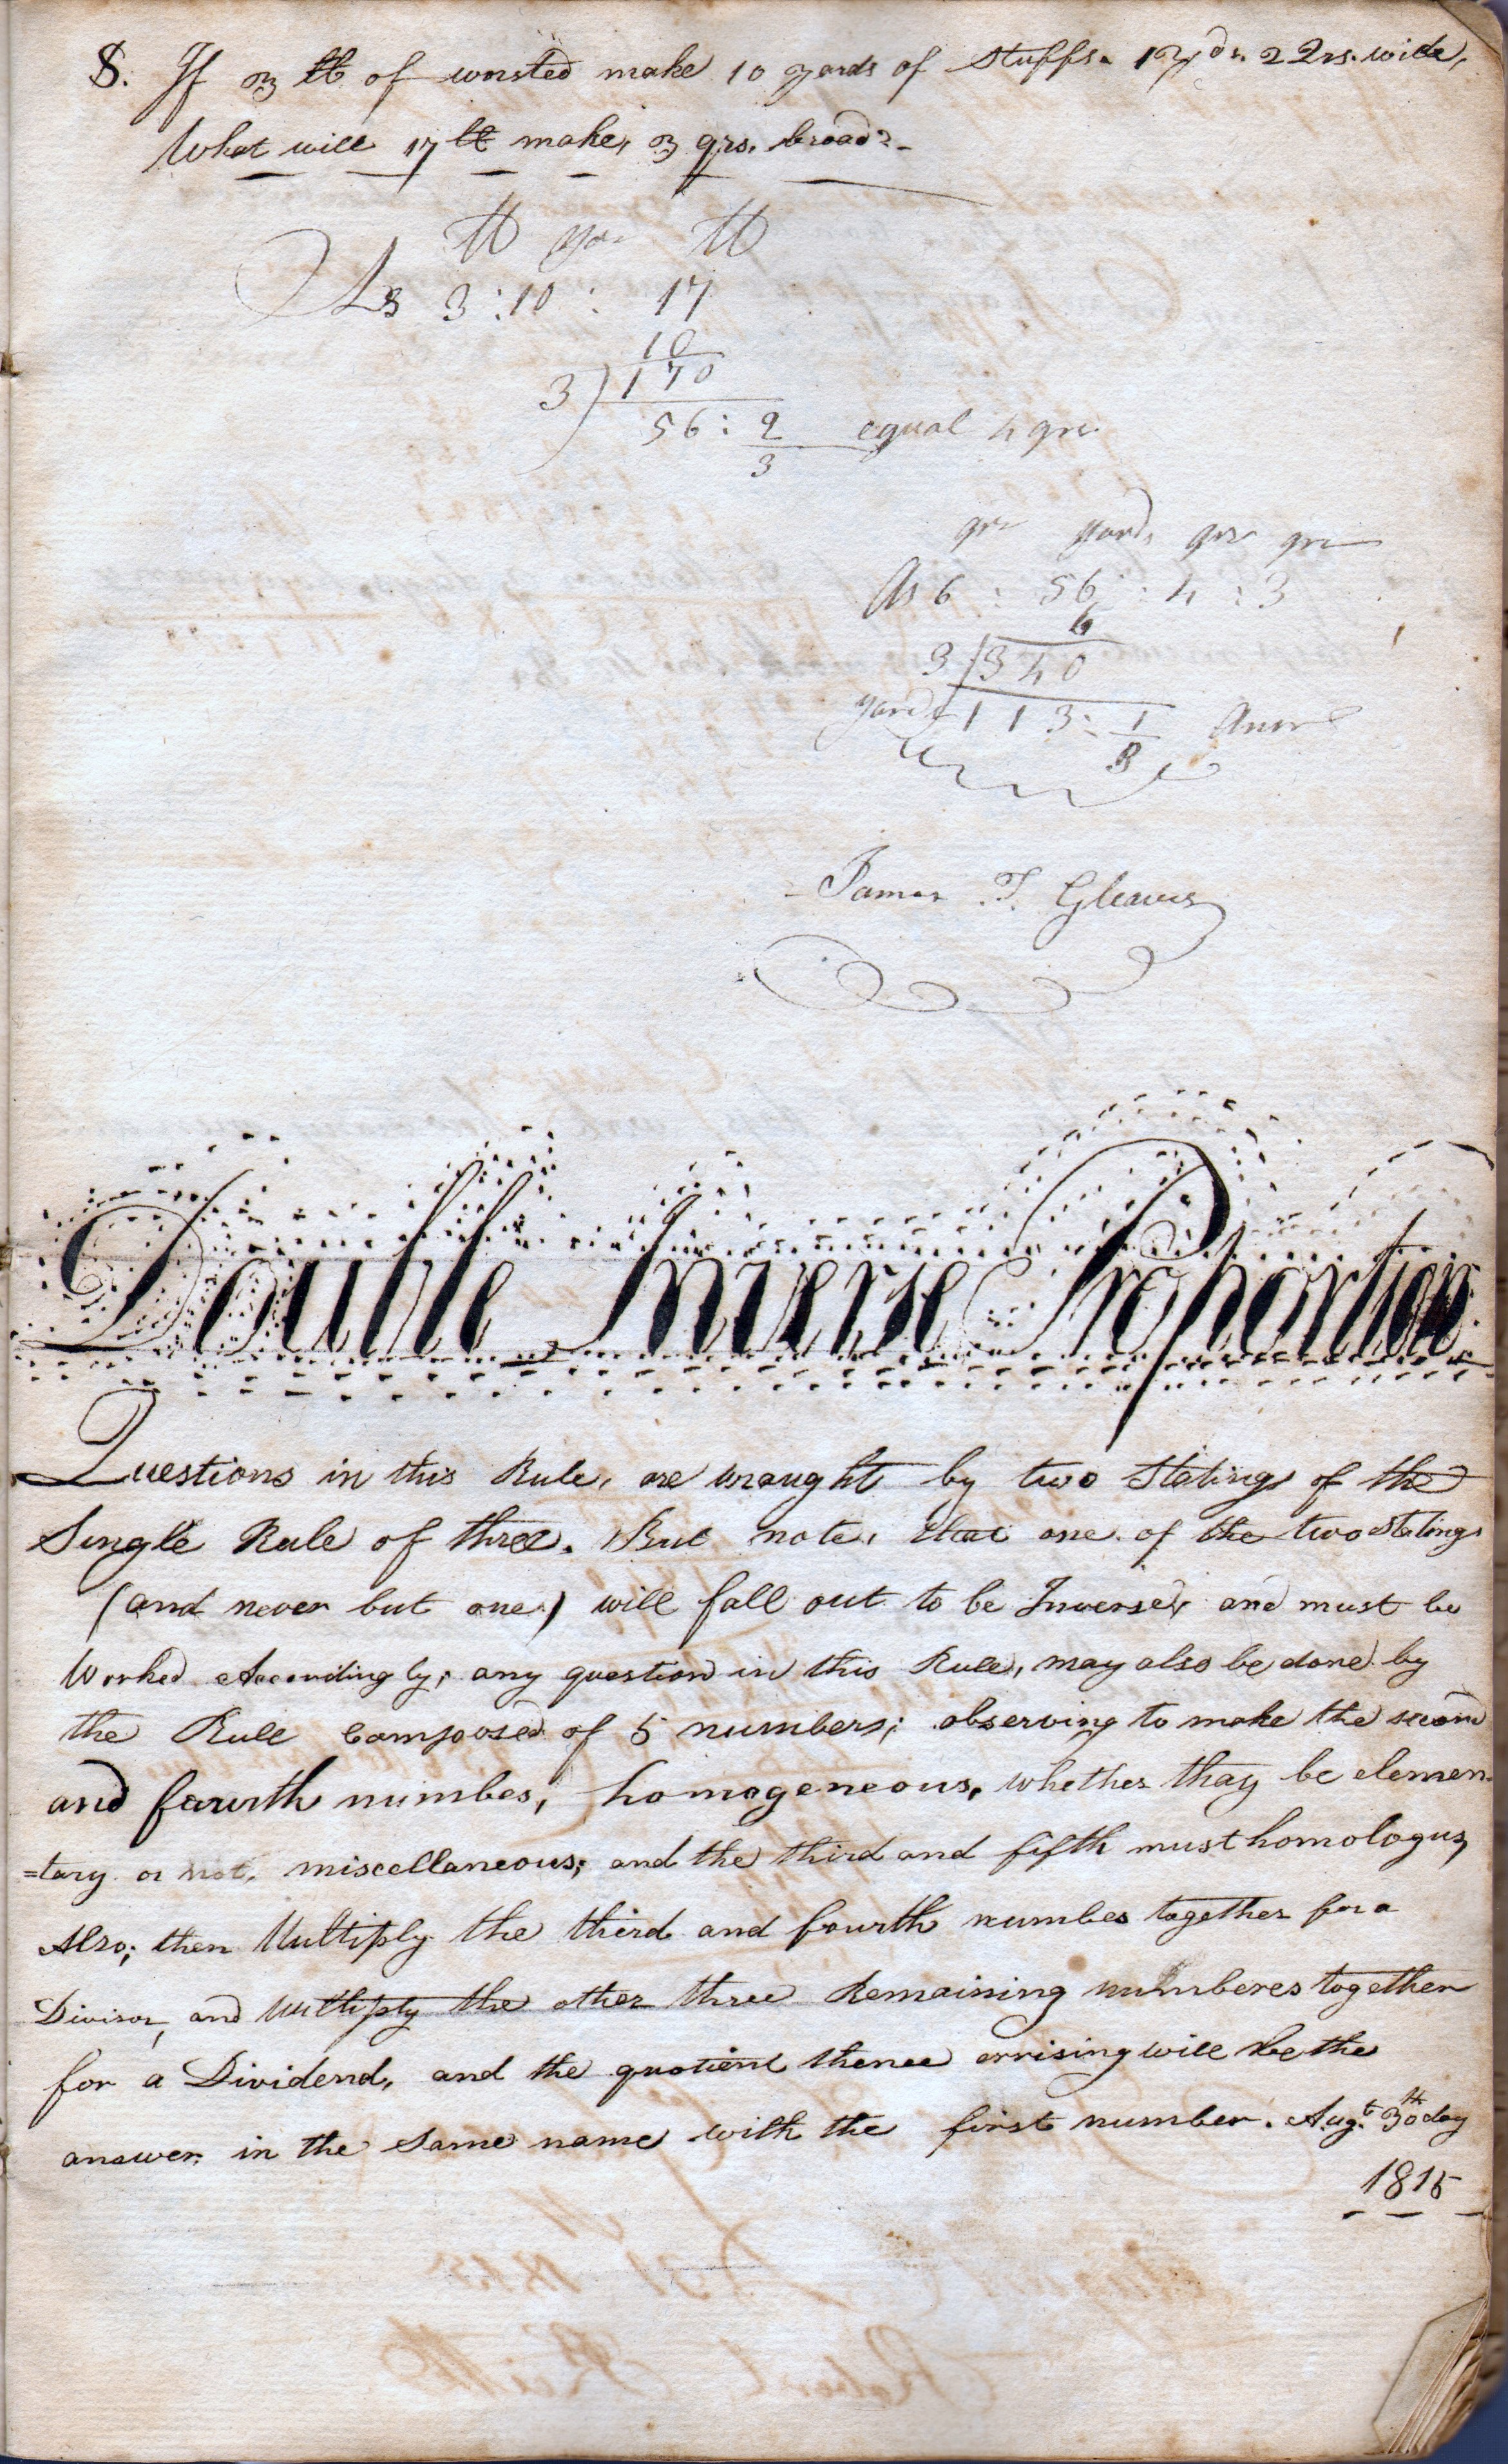 8. If 3 lb of worsted make 10 yards of stuffs. 1 yds. 2 Qrs. wide,
What will 17 lb make, 3 qrs. broad?
lb yds lb
As 3 : 10 : 17
10
3) 170
56 : 2/3 equal 4 qrs
qrs yards qrs qrs
As 6 : 56 : 4 : 3
6
3 | 340
yards 113 : 1/3 Answr
James T. Gleaves
Double Inverse Proportion
Questions in this Rule, are wraught by two Statings of the
Single Rule of three. But note, that one of the two Statings
(and never but one) will fall out to be Inverse, and must be
Worked Accordingly; any question in this Rule, may also be done by
the Rule Composed of 5 numbers; observing to make the second
and fourth number, homogeneous, whether thay be elemen-
=tary or not, miscellaneous; and the third and fifth must homologus,
Also; then Multiply the third and fourth number together for a
Divisor, and Multiply the other three Remaining numberes together
for a Dividend, and the quotient thence arrising will be the
answer in the same name with the first number. Augt. 30th day
1815